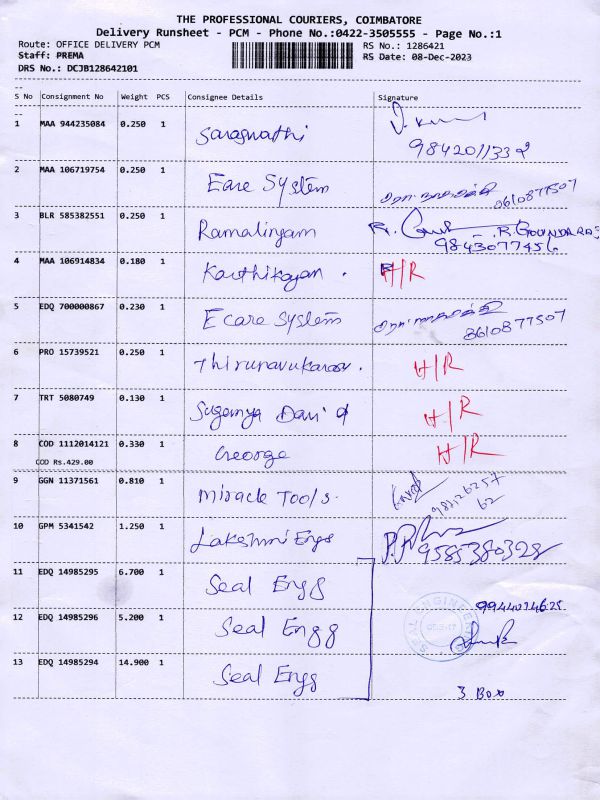 THE PROFESSIONAL COURIERS, COIMBATORE
Delivery Runsheet - PCM - Phone No.:0422-3505555 - Page No.:1
Route: OFFICE DELIVERY PCM RS No.: 1286421
Staff: PREMA RS Date: 08-Dec-2023
DRS No.: DCJB128642101
S No Consignment No Weight PCS Consignee Details Signature
1 MAA 944235084 0.250 1 Saraswathi
9842011332
2 MAA 106719754 0.250 1 Ecare System 8610877507
3 BLR 585382551 0.250 1 Ramalingam R. GOVINDARAJ
9843077456
4 MAA 106914834 0.180 1 Karthikayan. H/R
5 EDQ 700000867 0.230 1 Ecare System 8610877507
6 PRO 15739521 0.250 1 Thirunavukarasu. H/R
7 TRT 5080749 0.130 1 H/R
8 COD 1112014121 0.330 1 George H/R
COD Rs.429.00
9 GGN 11371561 0.810 1 Miracle Tools.
62
10 GPM 5341542 1.250 1 Lakshmi Engg 9585380328
11 EDQ 14985295 6.700 1 Seal Engg
12 EDQ 14985296 5.200 1 Seal Engg
13 EDQ 14985294 14.900 1 Seal Engg
3 Box